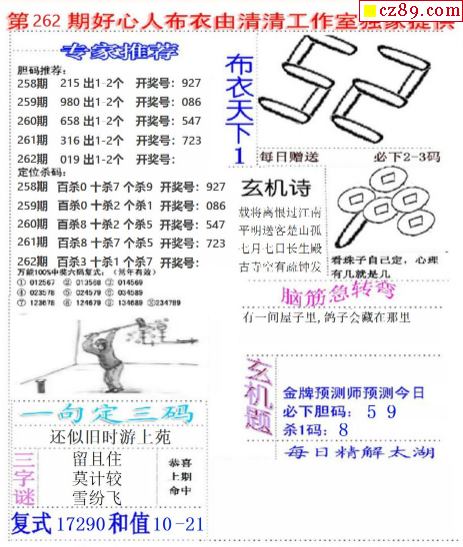 cz89.com
第262期好心人布衣由清清工作室独家提供
专家推荐
胆码推荐:
258期 215 出1-2个 开奖号: 927
259期 980 出1-2个 开奖号: 086
260期 658 出1-2个 开奖号: 547
261期 316 出1-2个 开奖号: 723
262期 019 出1-2个 开奖号:
定位杀码:
258期 百杀0 十杀7 个杀9 开奖号: 927
259期 百杀0 十杀2 个杀1 开奖号: 086
260期 百杀8 十杀2 个杀7 开奖号: 547
261期 百杀8 十杀7 个杀5 开奖号: 723
262期 百杀3 十杀1 个杀7 开奖号:
万能100%中奖六码复式: (常年有效)
① 012567 ② 013568 ③ 014569
④ 023578 ⑤ 024579 ⑥ 034589
⑦ 123678 ⑧ 124679 ⑨ 134689 ⑩234789
一句定三码
还似旧时游上苑
三字谜
留且住
莫计较
雪纷飞
恭喜
上期
命中
复式 17290 和值 10-21
布衣天下1
52
每日赠送 必下2-3码
玄机诗
载将离恨过江南
平明送客楚山孤
七月七日长生殿
古寺空有疏钟发
看珠子自己定, 心理
有几就是几
脑筋急转弯
有一间屋子里,鸽子会藏在那里
玄机题
金牌预测师预测今日
必下胆码: 5 9
杀1码: 8
每日精解太湖